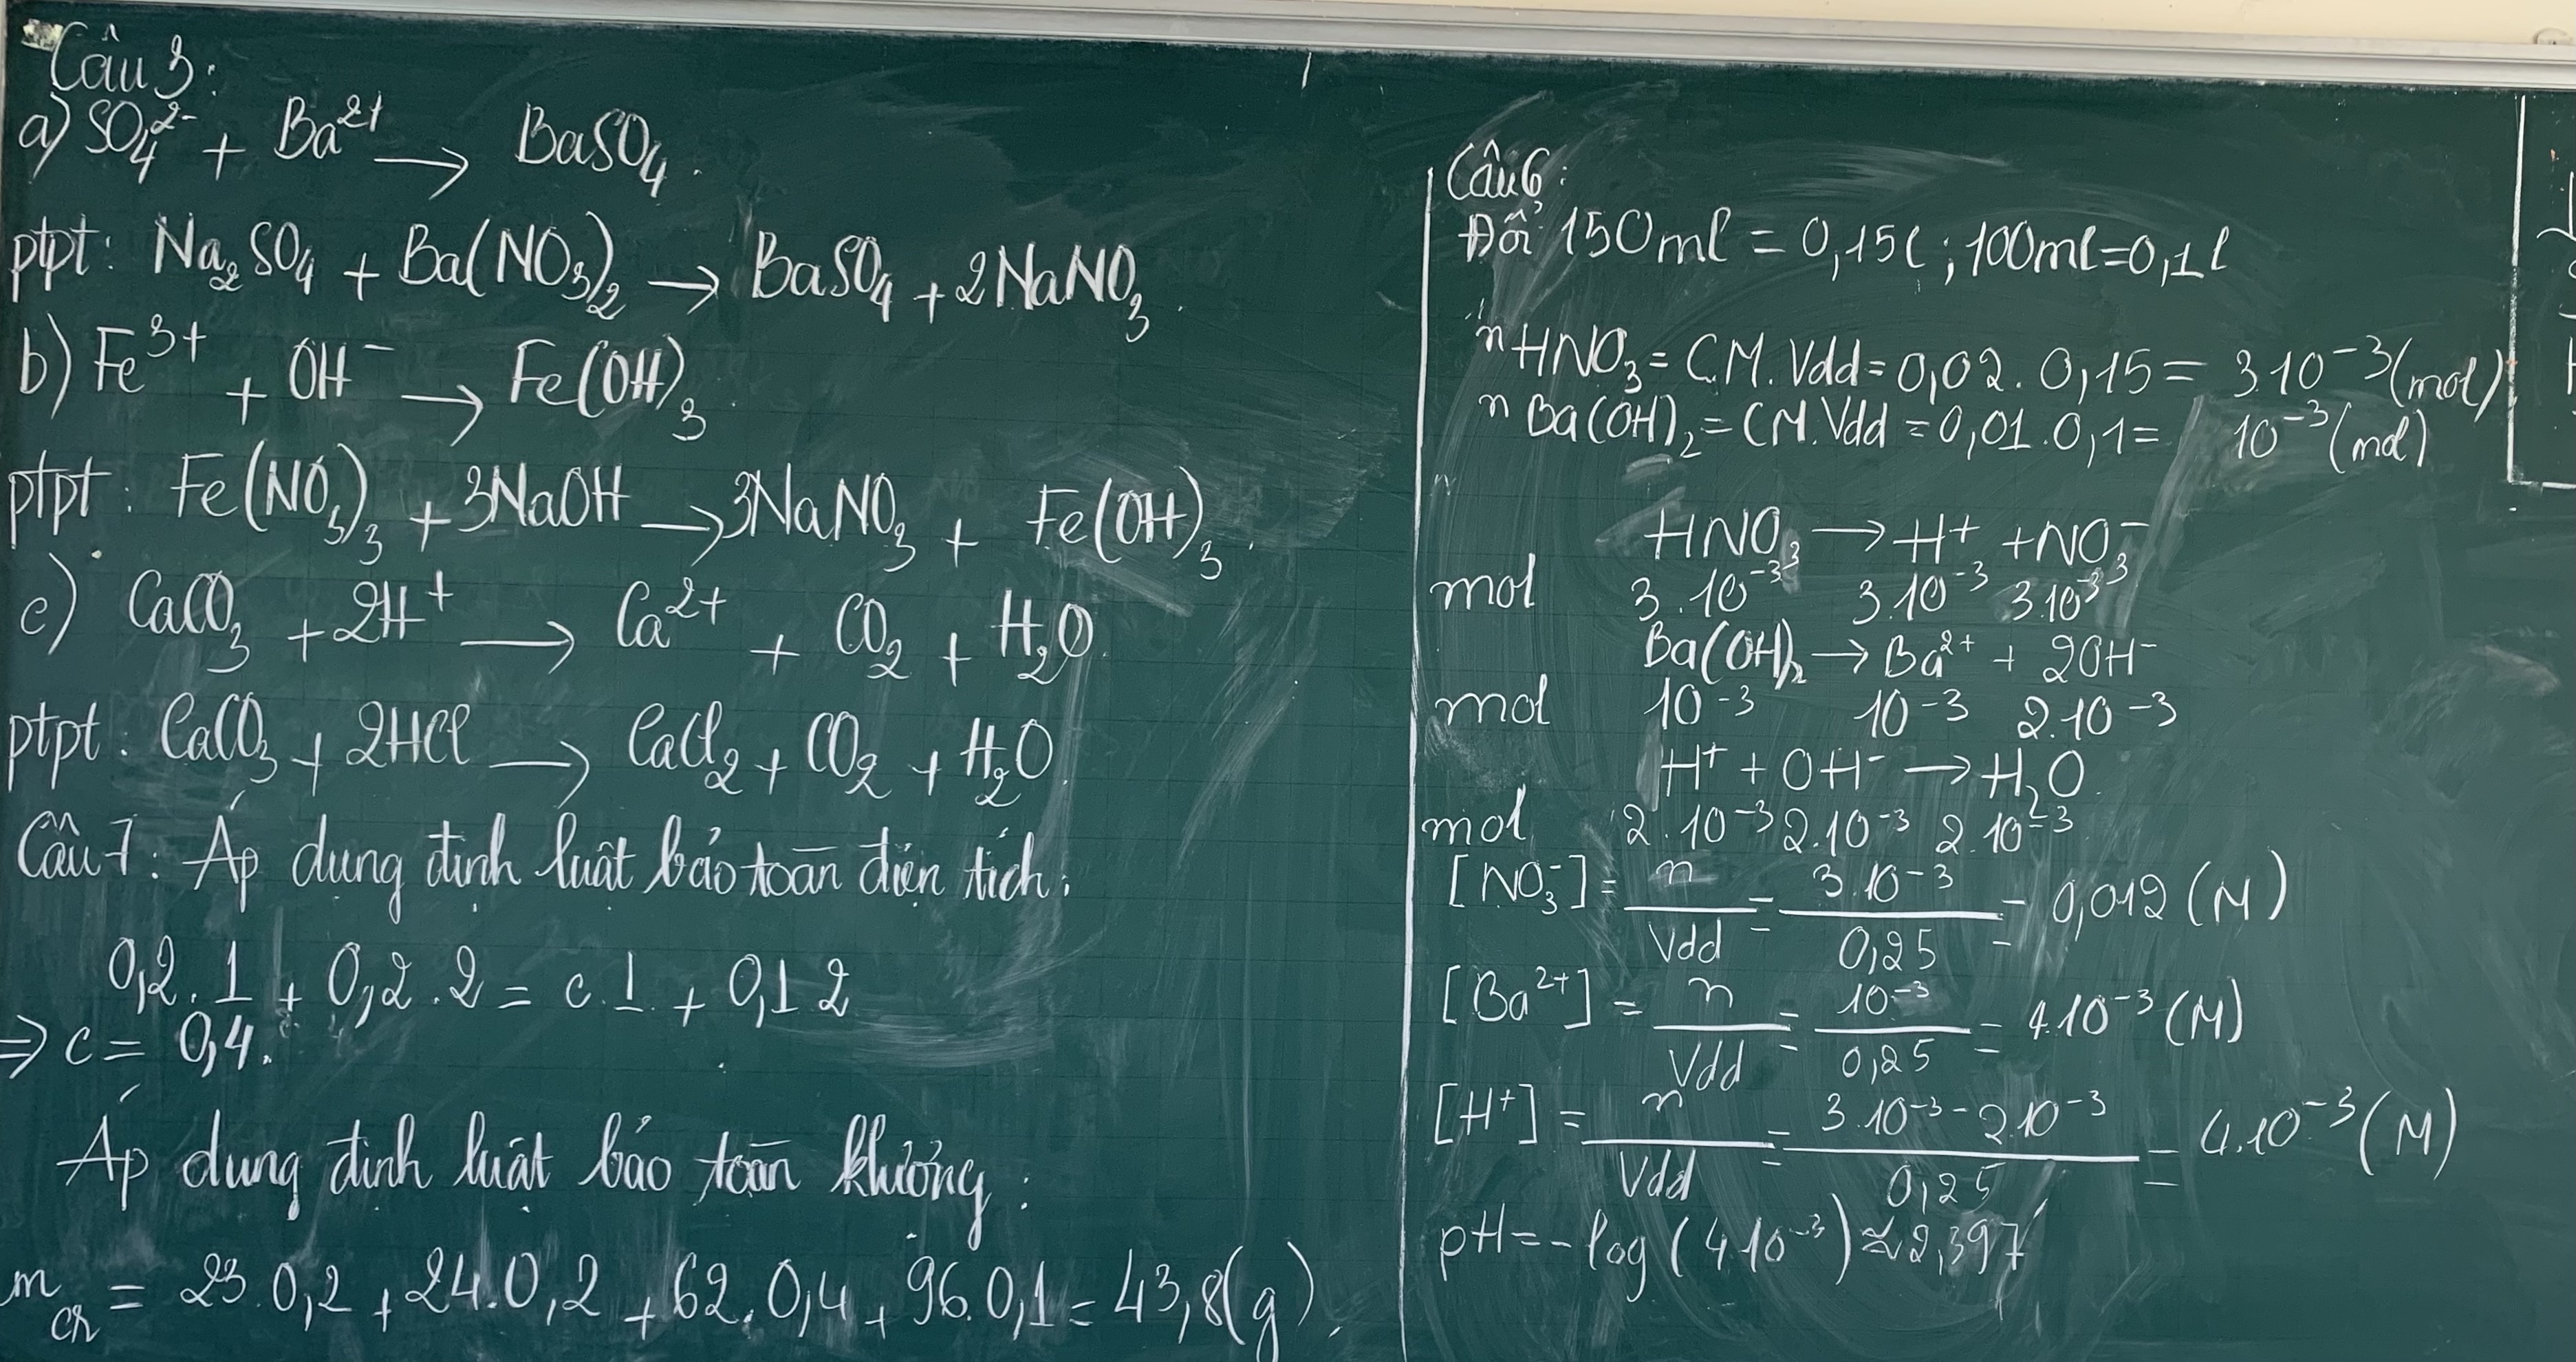 Câu 3:
a) SO₄²⁻ + Ba²⁺ → BaSO₄.
ptpt: Na₂SO₄ + Ba(NO₃)₂ → BaSO₄ + 2NaNO₃.
b) Fe³⁺ + OH⁻ → Fe(OH)₃.
ptpt: Fe(NO₃)₃ + 3NaOH → 3NaNO₃ + Fe(OH)₃.
c) CaCO₃ + 2H⁺ → Ca²⁺ + CO₂ + H₂O.
ptpt: CaCO₃ + 2HCl → CaCl₂ + CO₂ + H₂O.
Câu 7: Áp dụng định luật bảo toàn điện tích:
0,2.1 + 0,2.2 = c.1 + 0,1.2
⇒ c = 0,4.
Áp dụng định luật bảo toàn khlượng:
m cr = 23.0,2 + 24.0,2 + 62.0,4 + 96.0,1 = 43,8(g).
Câu 6:
Đổi 150ml = 0,15l ; 100ml = 0,1l
n HNO₃ = CM.Vdd = 0,02.0,15 = 3.10⁻³(mol)
n Ba(OH)₂ = CM.Vdd = 0,01.0,1 = 10⁻³(mol)
n
HNO₃ → H⁺ + NO₃⁻
mol 3.10⁻³ 3.10⁻³ 3.10⁻³
Ba(OH)₂ → Ba²⁺ + 2OH⁻
mol 10⁻³ 10⁻³ 2.10⁻³
H⁺ + OH⁻ → H₂O.
mol 2.10⁻³ 2.10⁻³ 2.10⁻³
[NO₃⁻] = n/Vdd = 3.10⁻³/0,25 = 0,012 (M)
[Ba²⁺] = n/Vdd = 10⁻³/0,25 = 4.10⁻³ (M)
[H⁺] = n/Vdd = 3.10⁻³ - 2.10⁻³/0,25 = 4.10⁻³ (M)
pH = -log (4.10⁻³) ≈ 2,397